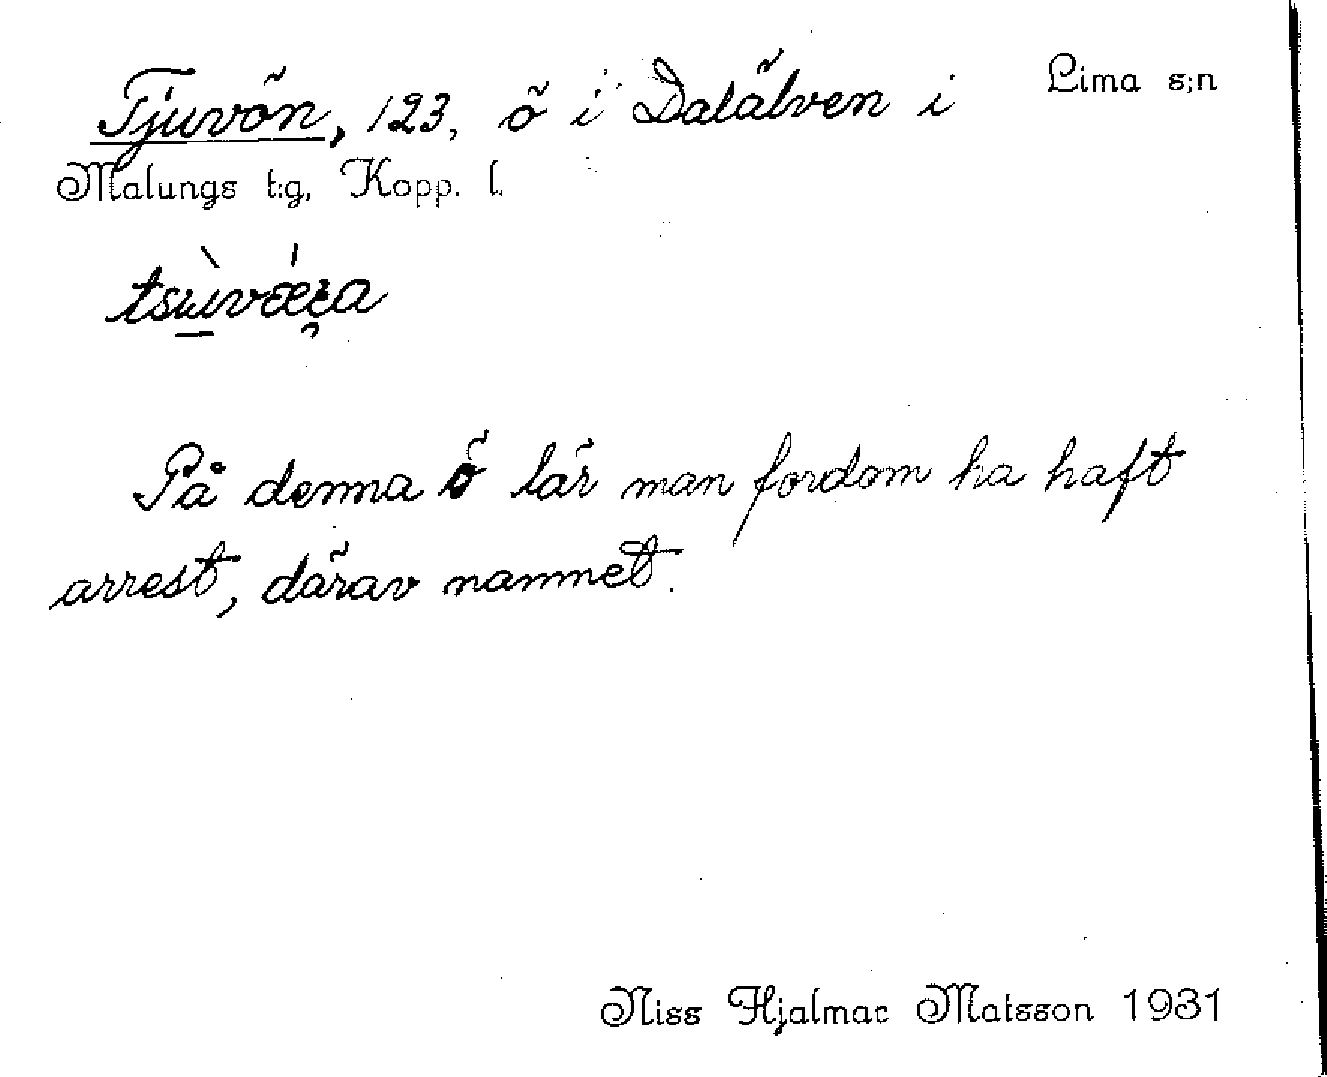 Tjuvön, 123, ö i Dalälven i Lima s:n
Malungs t:g, Kopp. l.
På denna ö lär man fordom ha haft
arrest, därav namnet.
Niss Hjalmar Matsson 1931